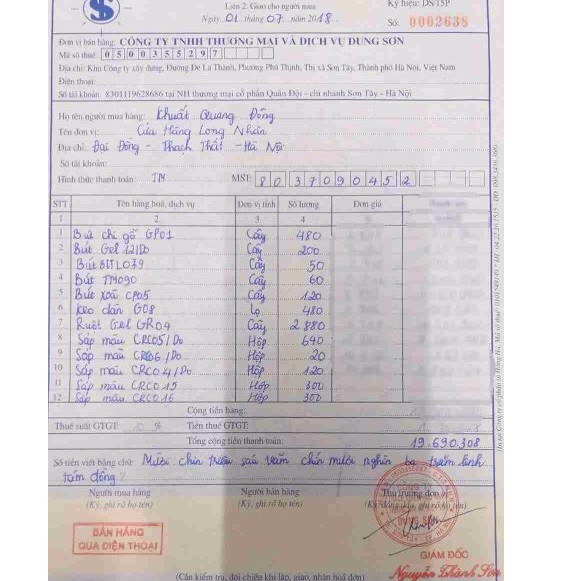 Liên 2: Giao cho người mua
Ký hiệu: DS/15P
Ngày 01 tháng 07 năm 2018
Số: 0002638
Đơn vị bán hàng: CÔNG TY TNHH THƯƠNG MẠI VÀ DỊCH VỤ DUNG SƠN
Mã số thuế: 0500355297
Địa chỉ: Khu Công ty xây dựng, Đường Đê La Thành, Phường Phú Thịnh, Thị xã Sơn Tây, Thành phố Hà Nội, Việt Nam
Điện thoại:
Số tài khoản: 8301119628686 tại NH thương mại cổ phần Quân Đội - chi nhánh Sơn Tây - Hà Nội
Họ tên người mua hàng: Khuất Quang Đông
Tên đơn vị: Cửa Hàng Long Nhân
Địa chỉ: Đại Đồng - Thạch Thất - Hà Nội
Số tài khoản:
Hình thức thanh toán: TM MST: 8037090452
STT Tên hàng hoá, dịch vụ Đơn vị tính Số lượng Đơn giá
1 2 3 4
1 Bút chì gỗ GP01 Cây 480
2 Bút Gel 12/Do Cây 200
3 Bút BITL039 Cây 50
4 Bút TM090 Cây 60
5 Bút xoá CP05 Cây 120
6 Keo dán G08 Lọ 480
7 Ruột Gel GR04 Cây 2 880
8 Sáp màu CRC05/Do Hộp 640
9 Sáp màu CRC06/Do Hộp 20
10 Sáp màu CRC04/Do Hộp 120
11 Sáp màu CRC015 Hộp 300
12 Sáp màu CRC016 Hộp 300
Cộng tiền hàng:
Thuế suất GTGT: % Tiền thuế GTGT:
Tổng cộng tiền thanh toán: 19.690.308
Số tiền viết bằng chữ: Mười chín triệu sáu trăm chín mươi nghìn ba trăm linh
tám đồng
Người mua hàng Người bán hàng Thủ trưởng đơn vị
(Ký, ghi rõ họ tên) (Ký, ghi rõ họ tên) (Ký, đóng dấu, ghi rõ họ tên)
DUNG SƠN
BÁN HÀNG
QUA ĐIỆN THOẠI
GIÁM ĐỐC
Nguyễn Thành Sơn
(Cần kiểm tra, đối chiếu khi lập, giao, nhận hoá đơn)